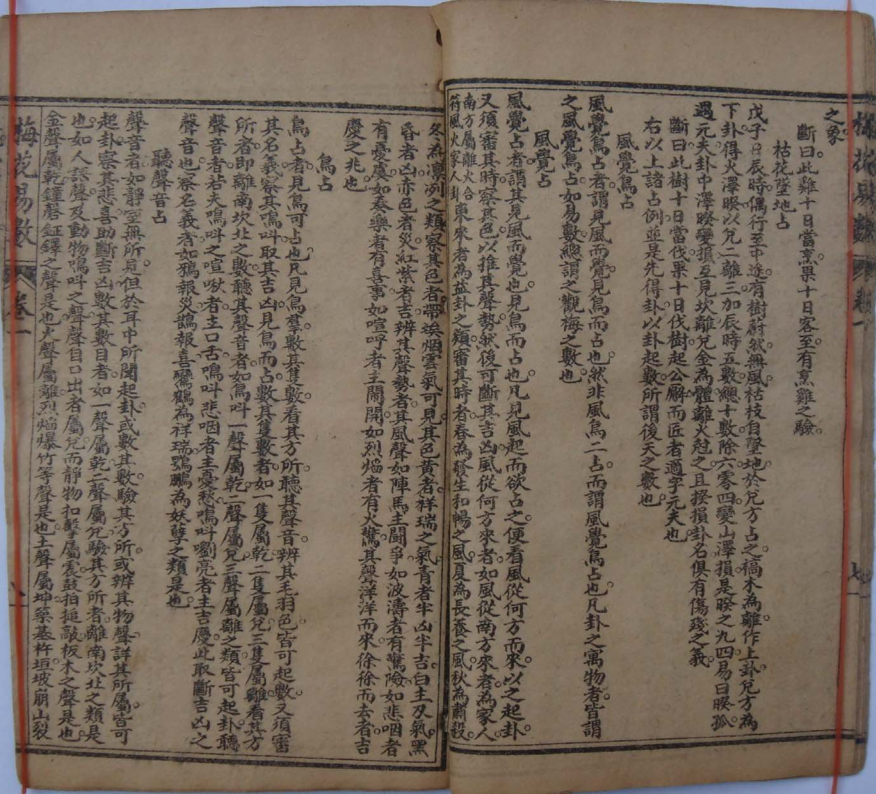 之象
斷曰此雞十日當烹果十日客至有烹雞之驗
枯花墜地占
戊子日辰時偶行至中途有樹蔚然無風枯枝自墜地於兌方占之槁木為離作上卦兌方為
下卦得火澤睽以兌二離三加辰時五數總十數除六零四變山澤損是睽之九四易曰睽孤
遇元夫卦中澤睽變損互見坎離兌金為體離火尅之且揆損卦名俱有傷殘之義
斷曰此樹十日當伐果十日伐樹起公廨而匠者適字元夫也
右以上諸占例並是先得卦以卦起數所謂後天之數也
風覺鳥占
風覺鳥占者謂見風而覺見鳥而占也然非風鳥二占而謂風覺鳥占也凡卦之寓物者皆謂
之風覺鳥占如易數總謂之觀梅之數也
風覺占
風覺占者謂其見風而覺也見鳥而占也凡見風起而欲占之便看風從何方而來以之起卦
又須審其時察其色以推其聲勢然後可斷其吉凶風從何方來者如風從南方來者為家人
南方屬離火合符風火家人卦東來者為益卦之類審其時者春為發生和暢之風夏為長養之風秋為肅殺
冬為凜冽之類察其色者帶埃烟雲氣可見其色黃者祥瑞之氣青者半凶半吉白主刃氣黑
昏者凶赤色者災紅紫者吉辨其聲勢者其風聲如陣馬主鬪爭如波濤者有驚險如悲咽者
有憂慮如奏樂者有喜事如喧呼者主鬧開如烈焰者有火驚其聲洋洋而來徐徐而去者吉
慶之兆也
鳥占
鳥占者見鳥可占也凡見鳥羣數其隻數看其方所聽其聲音辨其毛羽色皆可起數又須審
其名義察其鳴叫取其吉凶見鳥而占數其隻數者如一隻屬乾二隻屬兌三隻屬離看其方
所者即離南坎北之數聽其聲音者如鳥叫一聲屬乾二聲屬兌三聲屬離之類皆可起卦聽
聲音者若夫鳴叫之喧啾者主口舌鳴叫悲咽者主憂愁鳴叫嘹亮者主吉慶此取斷吉凶之
聲音也察名義者如鴉報災鵲報喜鸞鶴為祥瑞鶚鵬為妖孽之類是也
聽聲音占
聲音者如靜室無所見但於耳中所聞起卦或數其數驗其方所或辨其物聲詳其所屬皆可
起卦察其悲喜助斷吉凶數其數目者如一聲屬乾二聲屬兌驗其方所者離南坎北之類是
也如人語聲及動物鳴叫之聲聲自口出者屬兌而靜物扣擊屬震鼓拍搥敲板木之聲是也
金聲屬乾鐘磬鉦鐸之聲是也火聲屬離烈焰爆竹等聲是也土聲屬坤築基杵垣坡崩山裂
梅花易數 卷一
八